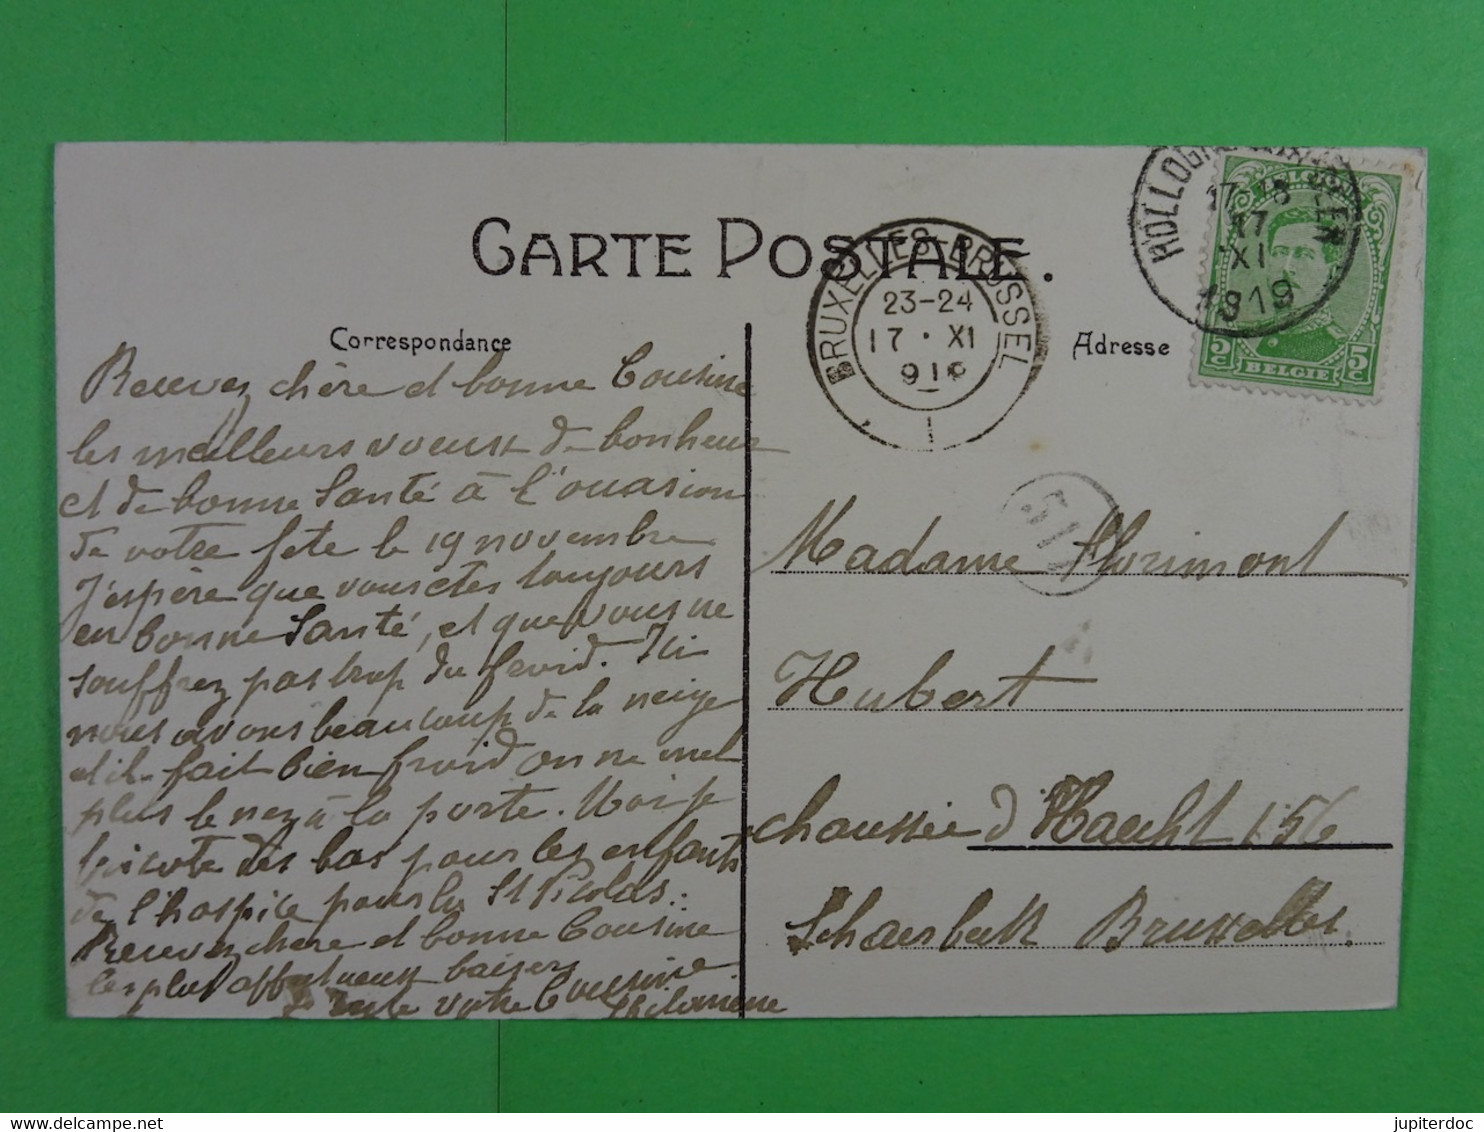 CARTE POSTALE.
Correspondance
Adresse
BRUXELLES-BRUSSEL
23-24
17 · XI
1
17
XI
1919
BELGIE
5c
511
Recevez chère et bonne Cousine
les meilleurs voeux de bonheur
et de bonne Santé à l'ouasion
de votre fête le 19 novembre
J'espère que vous etes toujours
en bonne Santé, et que vous ne
souffrez pas trop du froid. Ici
nous avons beaucoup de la neige
et il fait bien froid on ne met
plus le nez à la porte. Moi je
tricote des bas pour les enfants
de l'hospice pour la St Nicolas.
Recevez chère et bonne Cousine
les plus affectueux baisers
votre Cousine
Philomène
Madame Florimont
Hubert
chaussée d'Haecht 156
Schaerbeek Bruxelles.
jupiterdoc